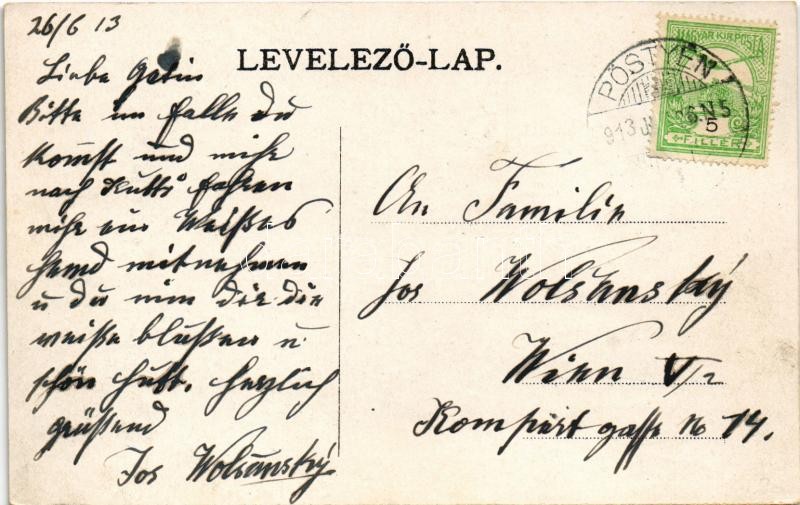 26/6 13
LEVELEZŐ-LAP.
MAGYAR KIR. POSTA
PÖSTYÉN
913 JUN 26 N5
5
FILLÉR
Liebe Gatin
Bitte im falle du
komst und mihr
nach fahren
mihr ein Weißes
hemd mitnehmen
u du nim dir die
weiße blußen u
schön hutt. herzlich
grüssend
Jos Wolsansky
An Familie
Jos Wolsansky
Wien V/2
gasse No 14.